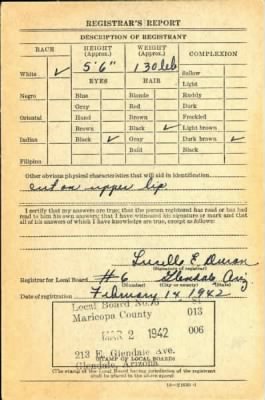 REGISTRAR'S REPORT
DESCRIPTION OF REGISTRANT
RACE HEIGHT (Approx.) WEIGHT (Approx.) COMPLEXION
White ✓ 5'6" 130 lb Sallow
EYES HAIR Light
Negro Blue Blonde Ruddy
Gray Red Dark
Oriental Hazel Brown Freckled
Brown Black ✓ Light brown
Indian Black ✓ Gray Dark brown ✓
Bald Black
Filipino
Other obvious physical characteristics that will aid in identification
cut on upper lip
I certify that my answers are true; that the person registered has read or has had
read to him his own answers; that I have witnessed his signature or mark and that
all of his answers of which I have knowledge are true, except as follows:
Lucille E. Duran
(Signature of registrar)
Registrar for Local Board #6 Glendale Ariz
(Number) (City or county) (State)
Date of registration February 14, 1942
Local Board No. 6
Maricopa County 013
MAR 2 1942 006
213 E. Glendale Ave.
Glendale, Arizona
(STAMP OF LOCAL BOARD)
(The stamp of the Local Board having jurisdiction of the registrant
shall be placed in the above space)